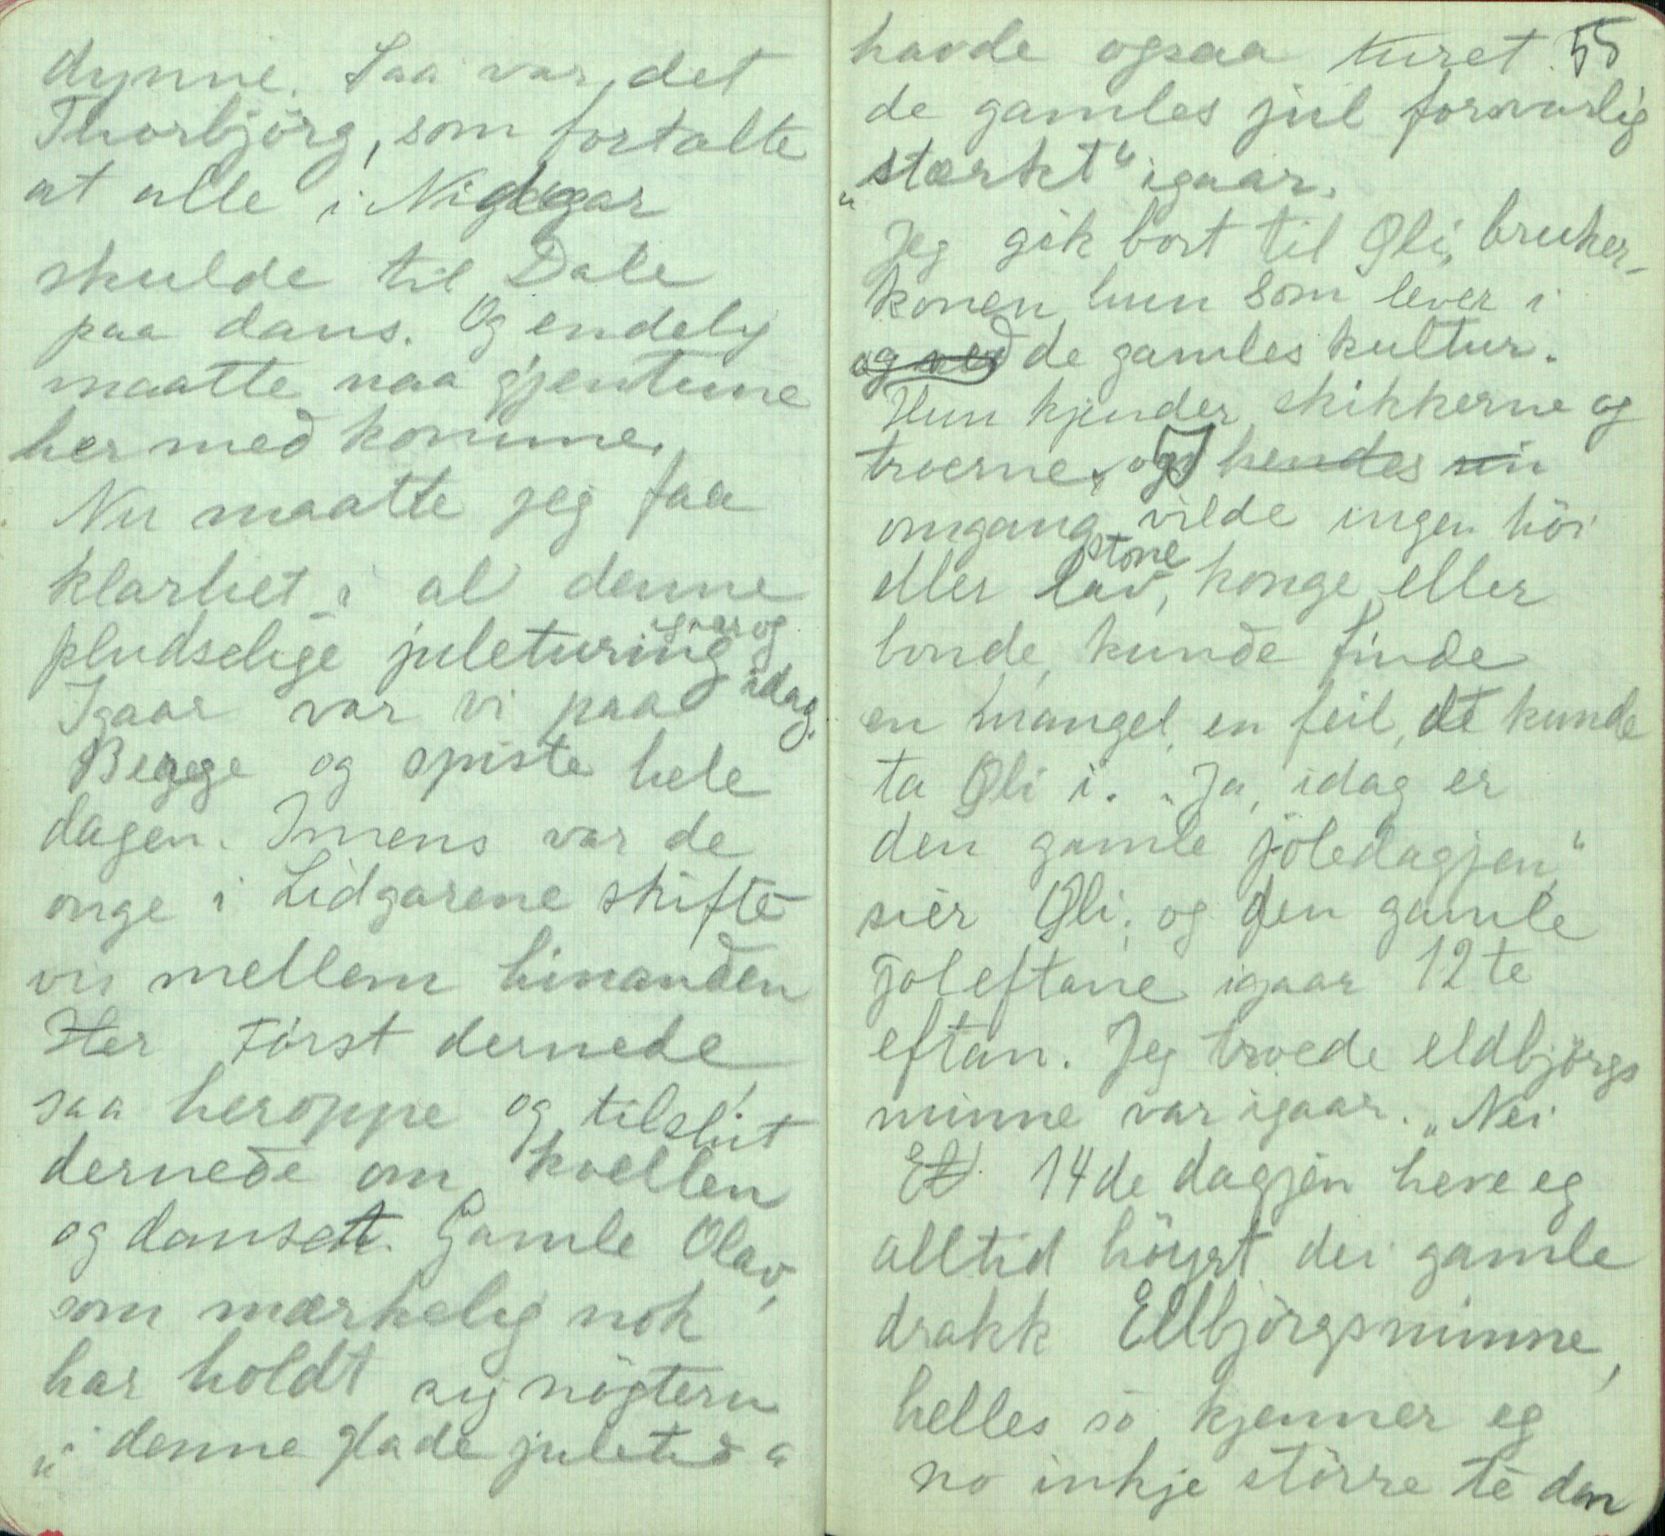 dynne. Saa var det
Thorbjörg, som fortalte
at alle i Nigar
skulde til Dale
paa dans. Og endely
maatte naa gjentune
her med komme.
Nu maatte jeg faa
klarhet i al denne
pludselige juleturing igaar og
idag.
Igaar var vi paa
Begge og spiste hele
dagen. Imens var de
onge i Lidgarene skifte
vis mellem hinanden
Her Först dernede
saa heroppe og tilslut
dernede om kvellen
og danset. Gamle Olav,
som mærkelig nok
har holdt sig nögtern
„i denne glade juletid“
havde ogsaa turet. 55
de gamles jul forsvarlig
„stærkt“ igaar.
Jeg gik bort til Øli, bruker-
konen hun som lever i
og ved de gamles kultur.
Hun kjender skikkerne og
troerne, og i hendes
omgang vilde ingen höi
eller lav, stone konge eller
bonde, kunde finde
en mangel, en feil, det kunde
ta Øli i. „Ja, idag er
den gamle jöledagjen,“
sier Øli, og den gamle
joleftane igaar 12te
eftan. Jeg troede eldbjörgs
minne var igaar. „Nei
14de dagjen heve eg
alltid höyrt dei gamle
drakk Ellbjörgsminne,
helles so kjenner eg
no inkje större te dan